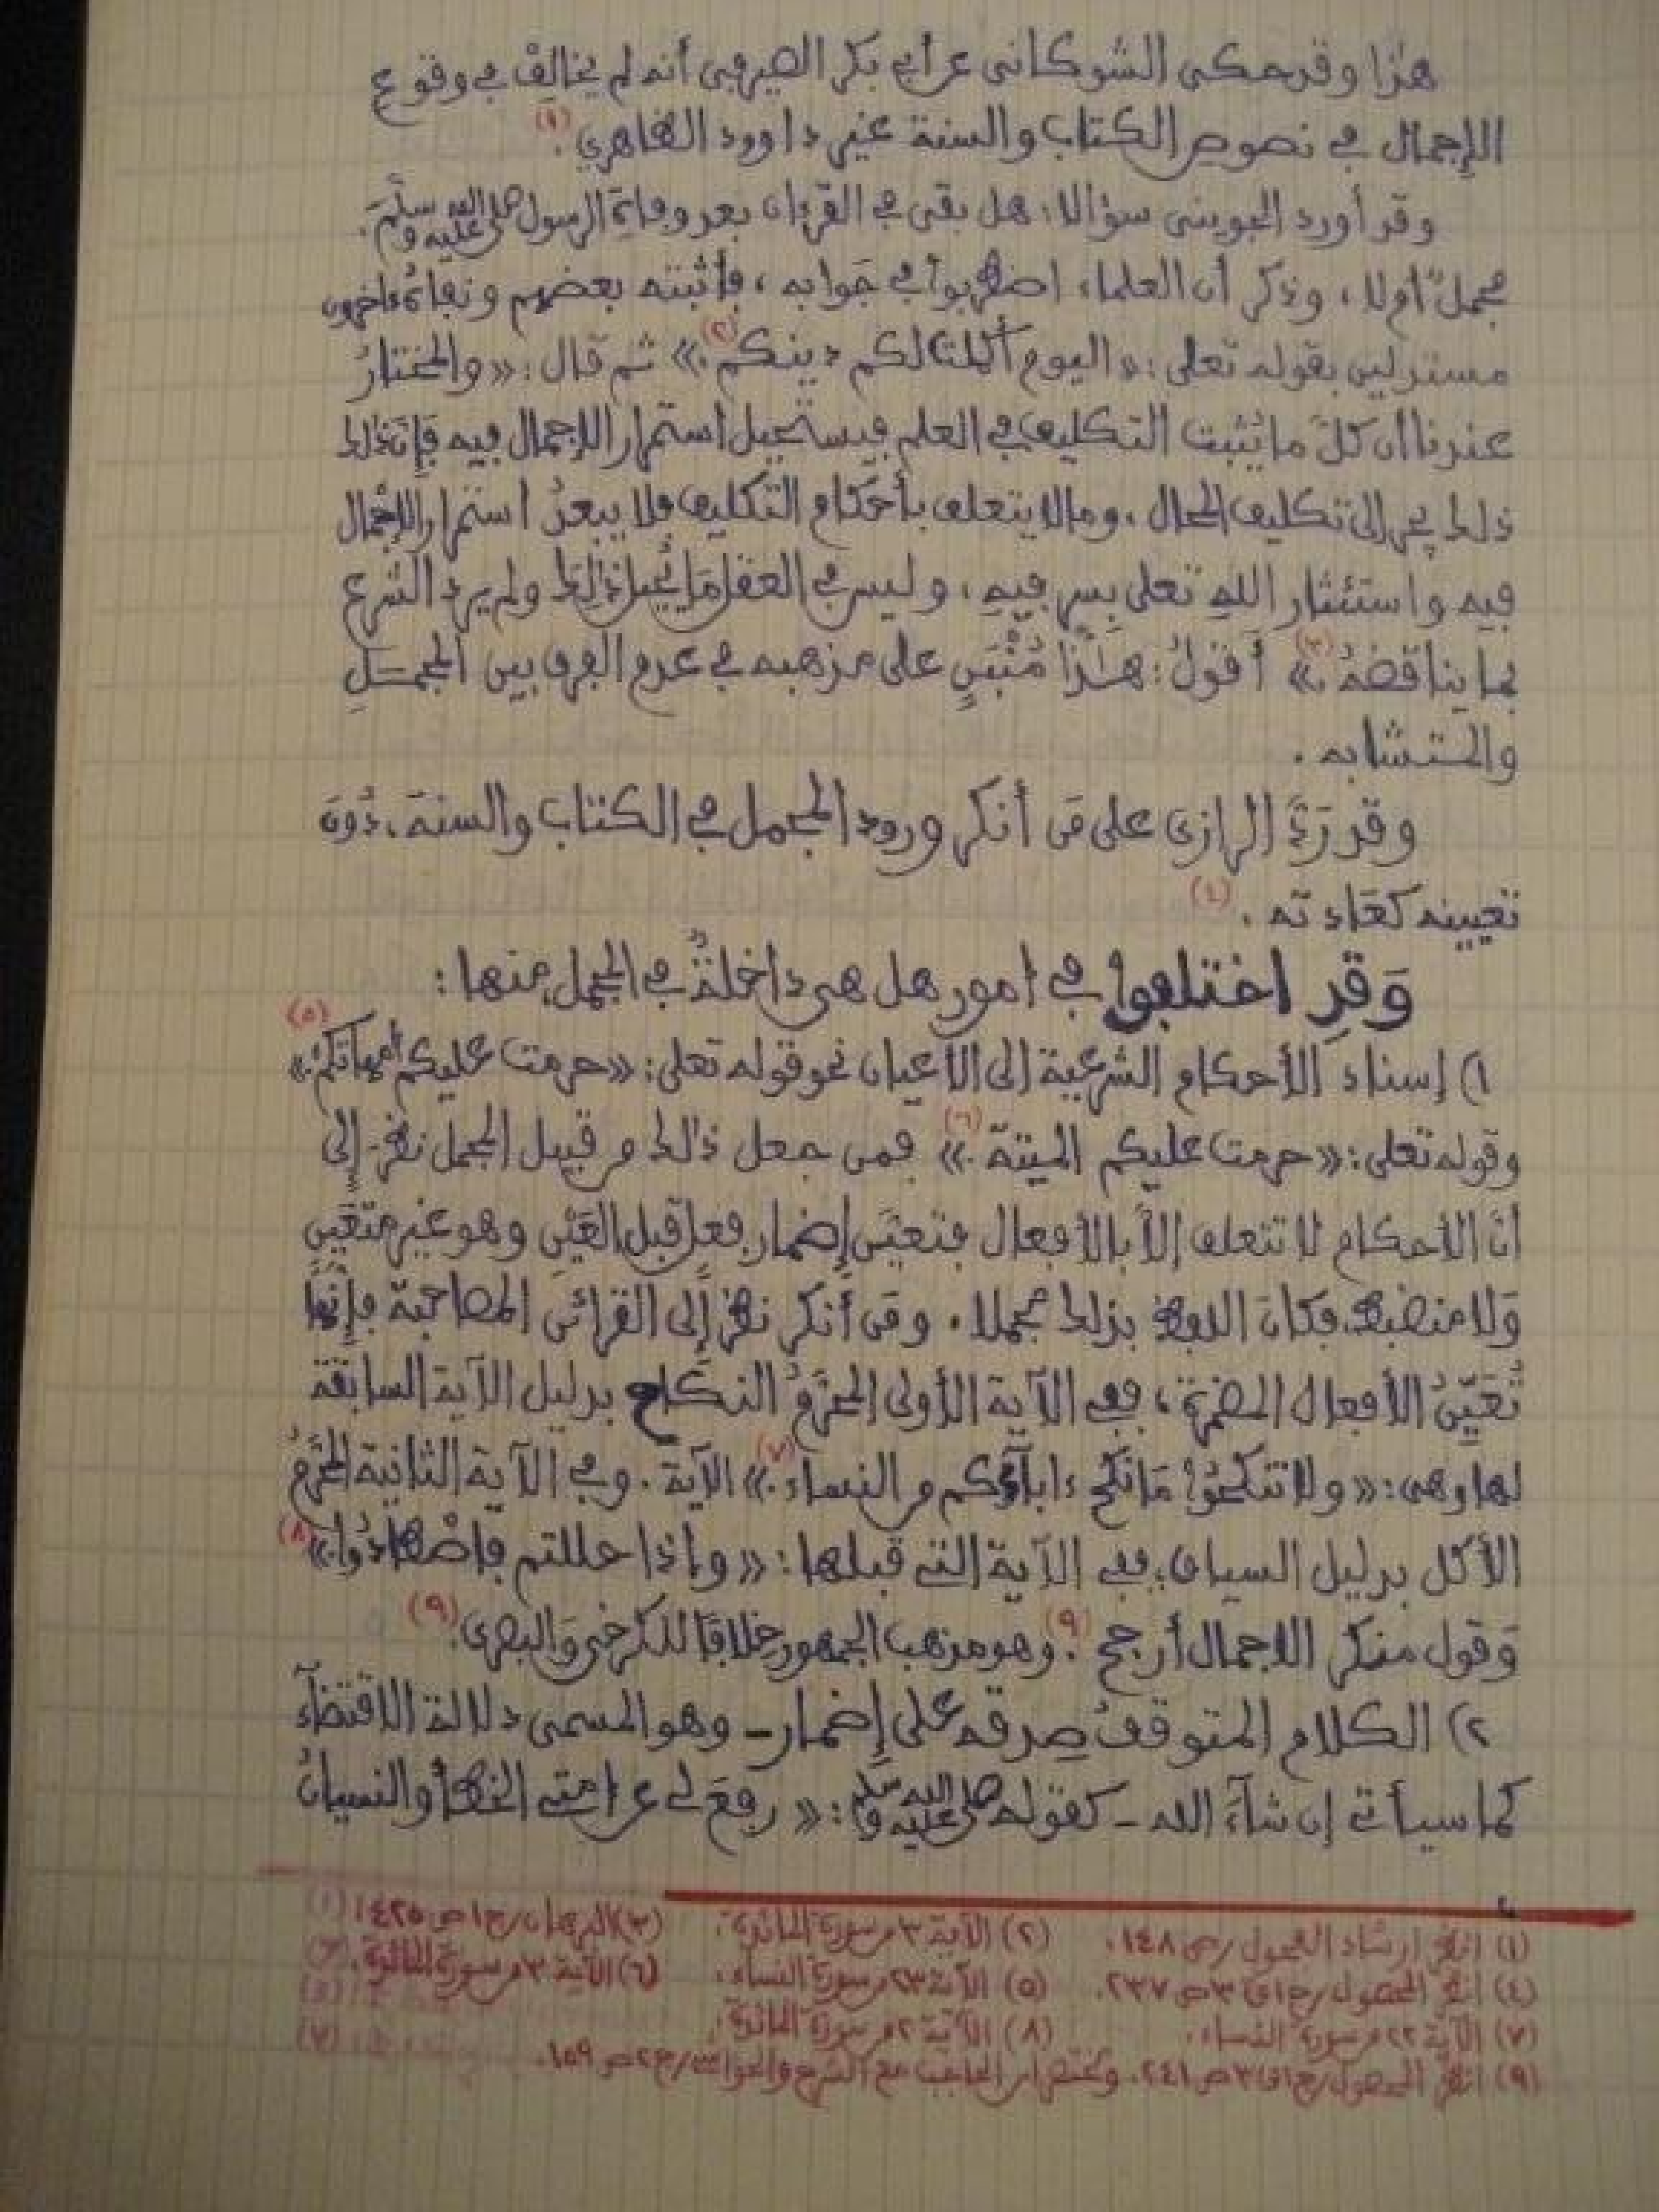 هذا وقد حكى الشوكاني عن أبي بكر الصيرفي أنه لم يخالف في وقوع
الإجمال في نصوص الكتاب والسنة غير داوود الظاهري (١).
وقد أورد الجويني سؤالا: هل بقي في القرءان بعد وفاة الرسول صلى الله عليه وسلم
مجمل أم لا، وذكر أن العلماء اضطربوا في جوابه، فأثبته بعضهم ونفاه ءاخرون
مستدلين بقوله تعلى: «اليوم أكملت لكم دينكم (٢).» ثم قال: «والمختارُ
عندنا أن كلَّ ما يثبت التكليف في العلم فيستحيل استمرار الإجمال فيه فإن ذلك
ذلك يجر إلى تكليف المحال، وما لا يتعلق بأحكام التكليف فلا يبعدُ استمرار الإجمال
فيه واستئثار اللهِ تعلى بسر فيهِ، وليس في العقل مَا يُحيل ذَلِكَ ولم يرد الشرع
بما يناقضهُ (٣).» أقولُ: هَذَا مُنْبَنٍ على مذهبه في عدم الفرق بين المجمَلِ
والمتشابه.
وقد رَدَّ الرازي على مَن أنكر ورود المجمل في الكتاب والسنة، دُونَ
تعيينه كعَادته. (٤)
وَقَدِ اختلفوا في أمور هل هي داخلةٌ في المجمل، منها:
١) إسناد الأحكام الشرعية إلى الأعيان نحو قوله تعلى: «حرمت عليكم أمهاتكمْ.» (٥)
وقوله تعلى: «حرمت عليكم الميتة (٦).» فمن جعل ذالك من قبيل المجمل نظر إلى
أنَّ الأحكام لا تتعلق إلاَّ بالأفعال فتعيَّن إضمار فعل قبل العَيْنِ وهو غير متعَيِّنٍ
وَلا منضبط، فكانَ اللفظ بذلك مجملا. ومَن أنكر نظر إلى القرائن المصاحبة فإنَّها
تُعَيِّنُ الأفعال المضمرة، ففي الآية الأولى المحرَّمُ النكَاح بدليل الآية السابقة
لها وهي: «ولا تنكحُوا مَا نكح ءاباؤكم من النساء (٧).» الآية. وفي الآية الثانية المحَرَّمُ
الأكل بدليل السياق، ففي الآية التي قبلها: «وإذا حللتم فاصْطادُوا.» (٨)
وَقول منكر الإجمال أرجح (٩). وهو مذهب الجمهور خلافًا للكرخي والبصري. (٩)
٢) الكلام المتوقفُ صِدقه على إضمار - وهو المسمى دلالة الاقتضاء
كما سيأتي إن شآء الله - كقوله صلى الله عليه وسلم: «رفعَ لي عن أمتي الخطأ والنسيانُ
(١) انظر ارشاد الفحول/ص ١٤٨. (٢) الآية ٣ من سورة المائدة. (٣) البرهان/ج ١ ص ٤٢٥.
(٤) انظر المحصول/ج ١ ق ٣ ص ٢٣٧. (٥) الآية ٢٣ من سورة النساء. (٦) الآية ٣ من سورة المائدة.
(٧) الآية ٢٢ من سورة النساء. (٨) الآية ٢ من سورة المائدة.
(٩) انظر المحصول/ج ١ ق ٣ ص ٢٤١. ومختصر ابن الحاجب مع الشرح والحواشي/ج ٢ ص ١٥٩.